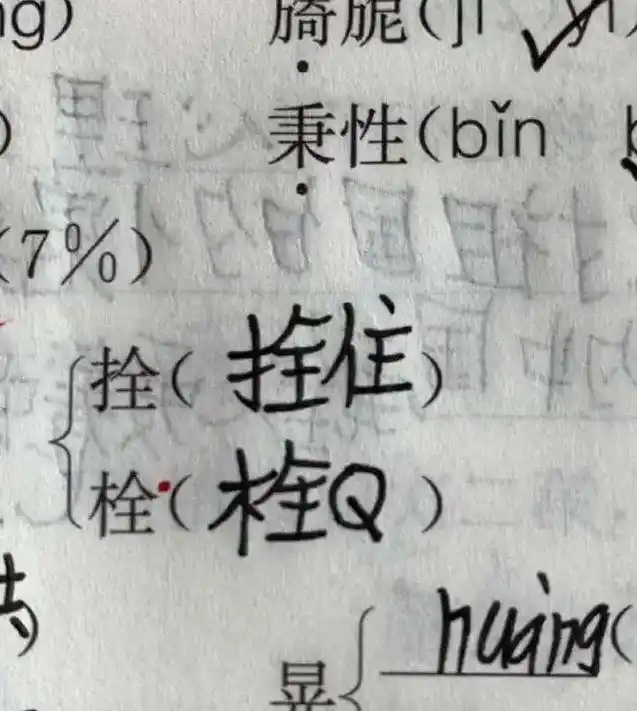 旖旎(jǐ yǐ)
秉性(bǐn
(7%)
拴(拴住)
栓(栓Q)
晃{huàng(